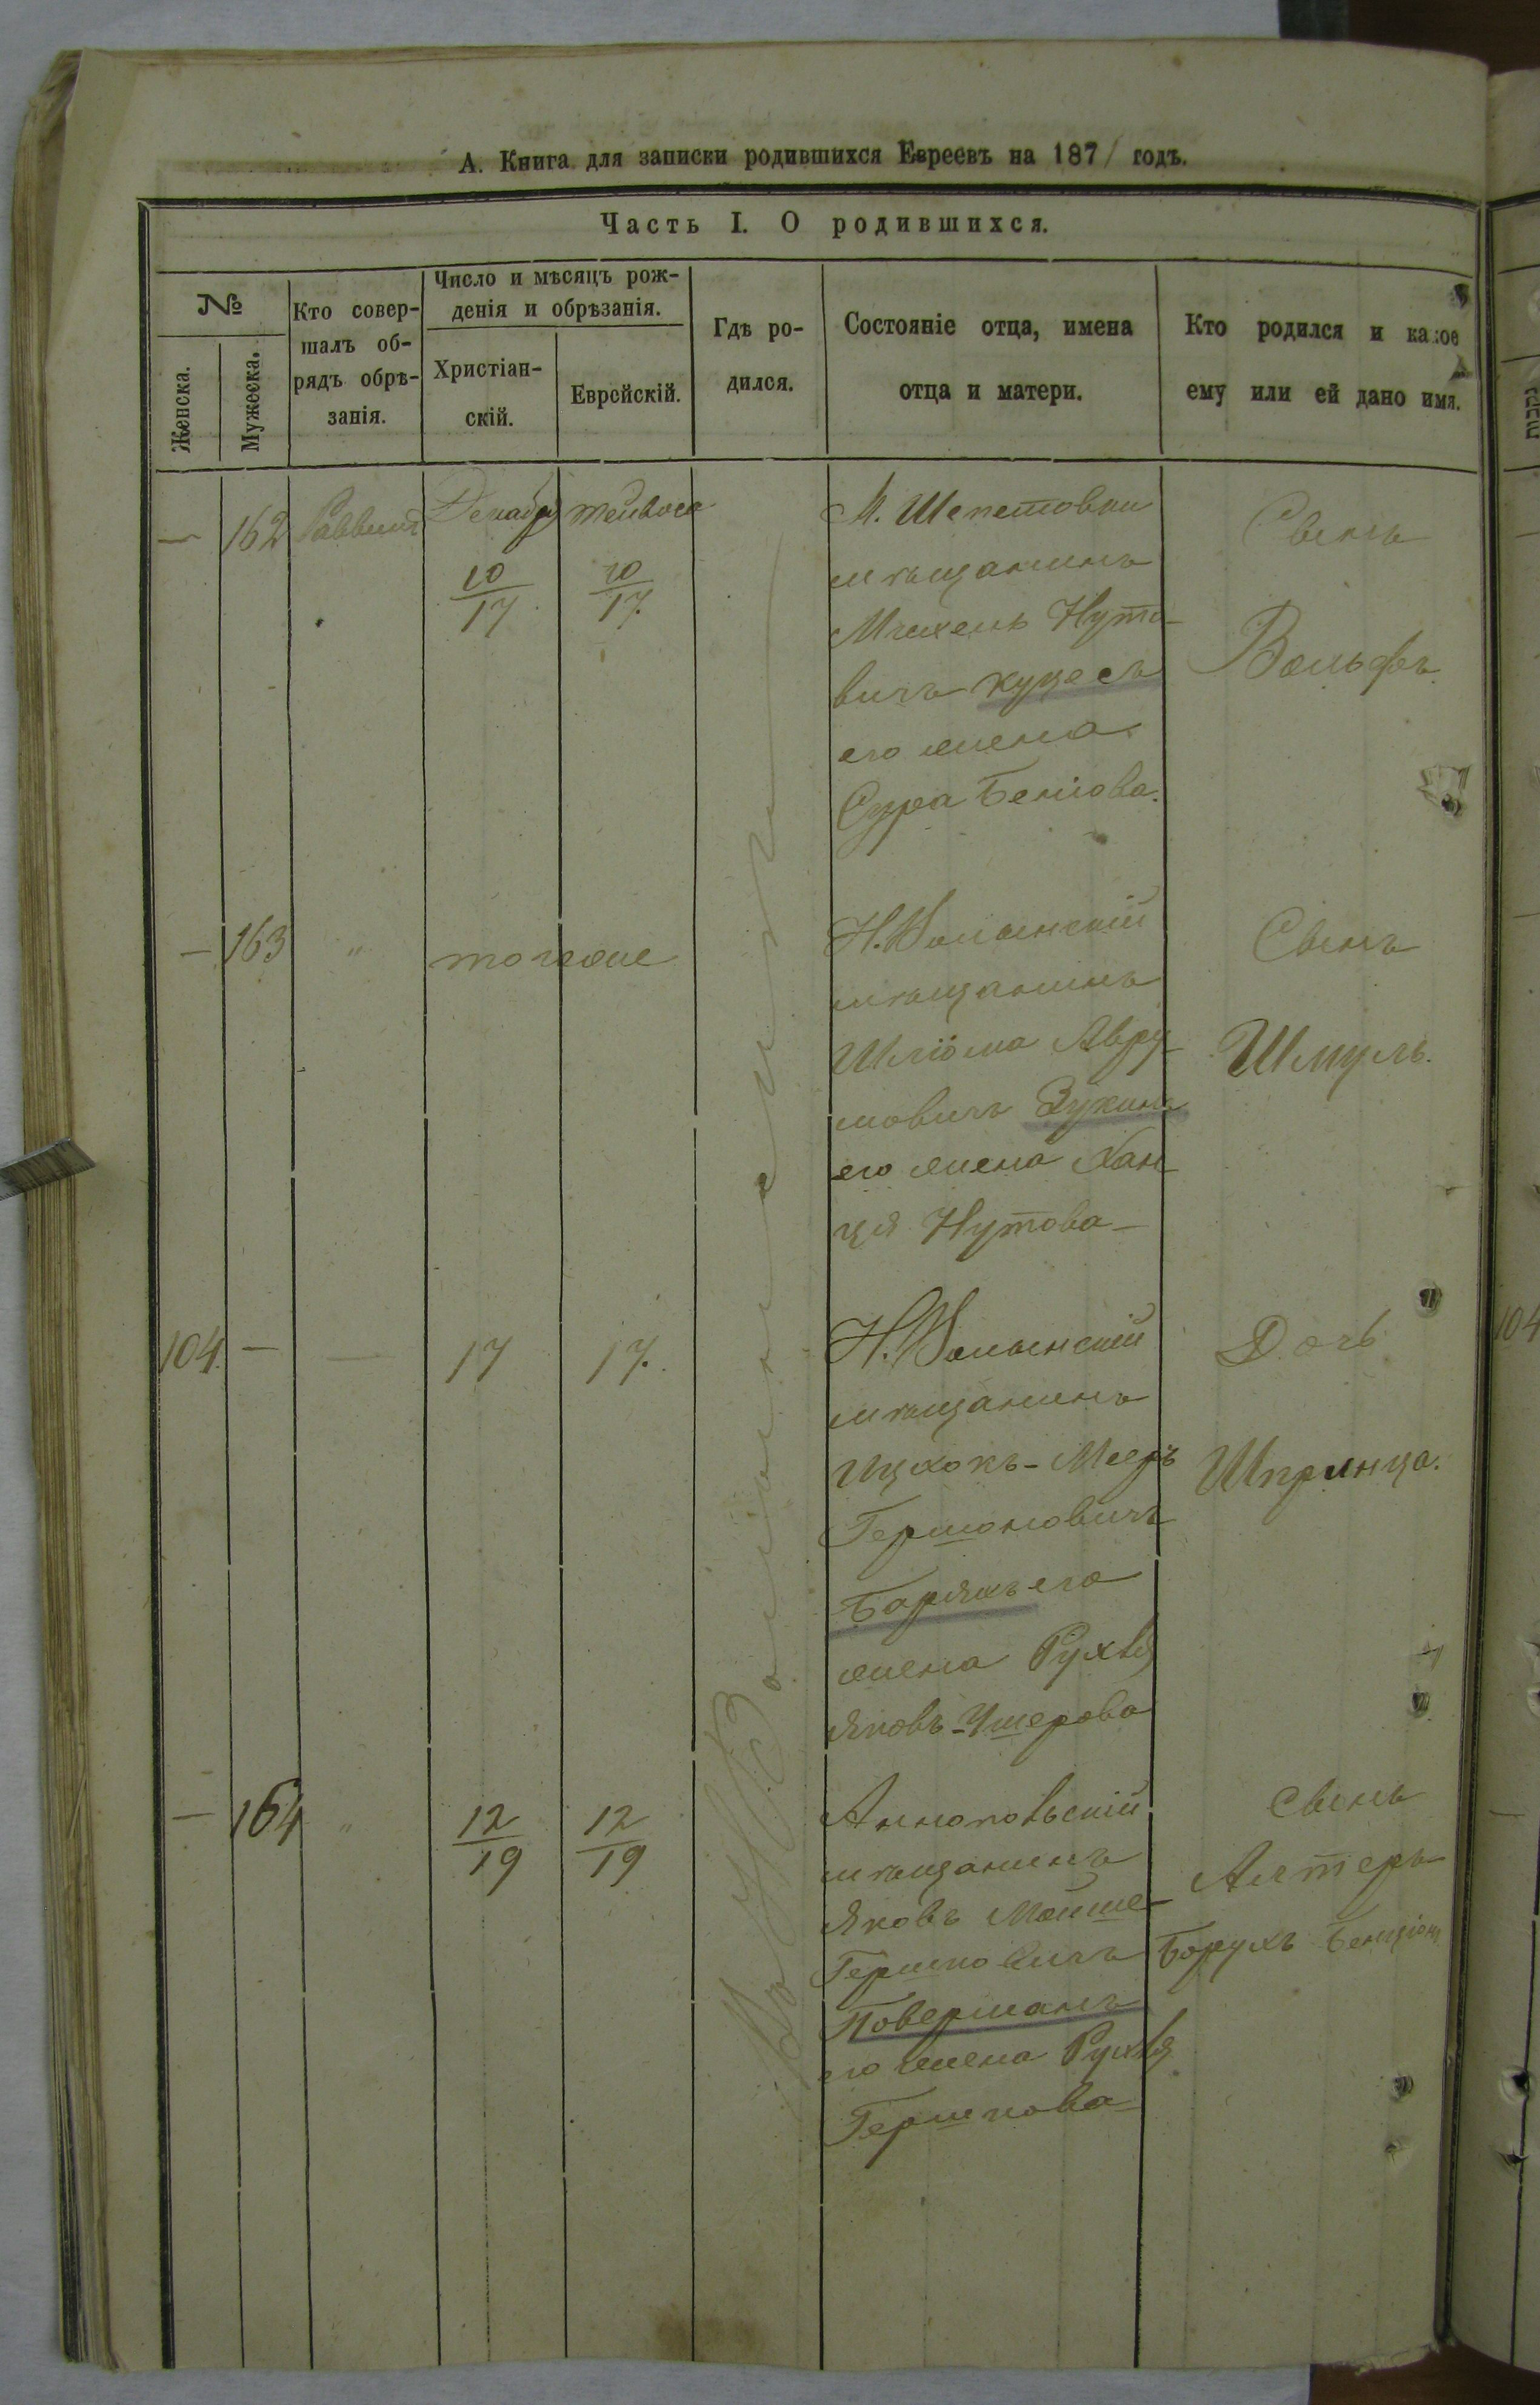 А. Книга для записки родившихся Евреевъ на 1871 годъ.
Часть I. О родившихся.
№
Женска.
Мужеска.
Кто совер-
шалъ об-
рядъ обрѣ-
занія.
Число и мѣсяцъ рож-
денія и обрѣзанія.
Христіан-
скій.
Еврейскій.
Гдѣ ро-
дился.
Состояніе отца, имена
отца и матери.
Кто родился и какое
ему или ей дано имя.
— 162 Раввинъ Декабрь тейвеса
10/17 10/17.
М. Шепетовки
мѣщанинъ
Михель Нуто-
вичъ Куцесъ
его жена
Сура Беніова.
Сынъ
Вольфъ.
— 163 " тогоже
Н. Волынскій
мѣщанинъ
Шлiома Авру
мовичъ Зукинъ
его жена Хан
ця Нутова —
Сынъ
Шмуль.
104. — — 17 17.
Н. Волынскій
мѣщанинъ
Ицхокъ-Мееръ
Гершоновичъ
Боряхъ его
жена Рухля
Яковъ-Ушерова
Дочь
Шпринца.
— 164 " 12/19 12/19
Аннопольскій
мѣщанинъ
Яковъ Мойше-
Гершковичъ
Поверманъ
его жена Рухля
Гершкова
Сынъ
Алтеръ
Борухъ Бенціонъ
Въ Н. Волынскѣ
104